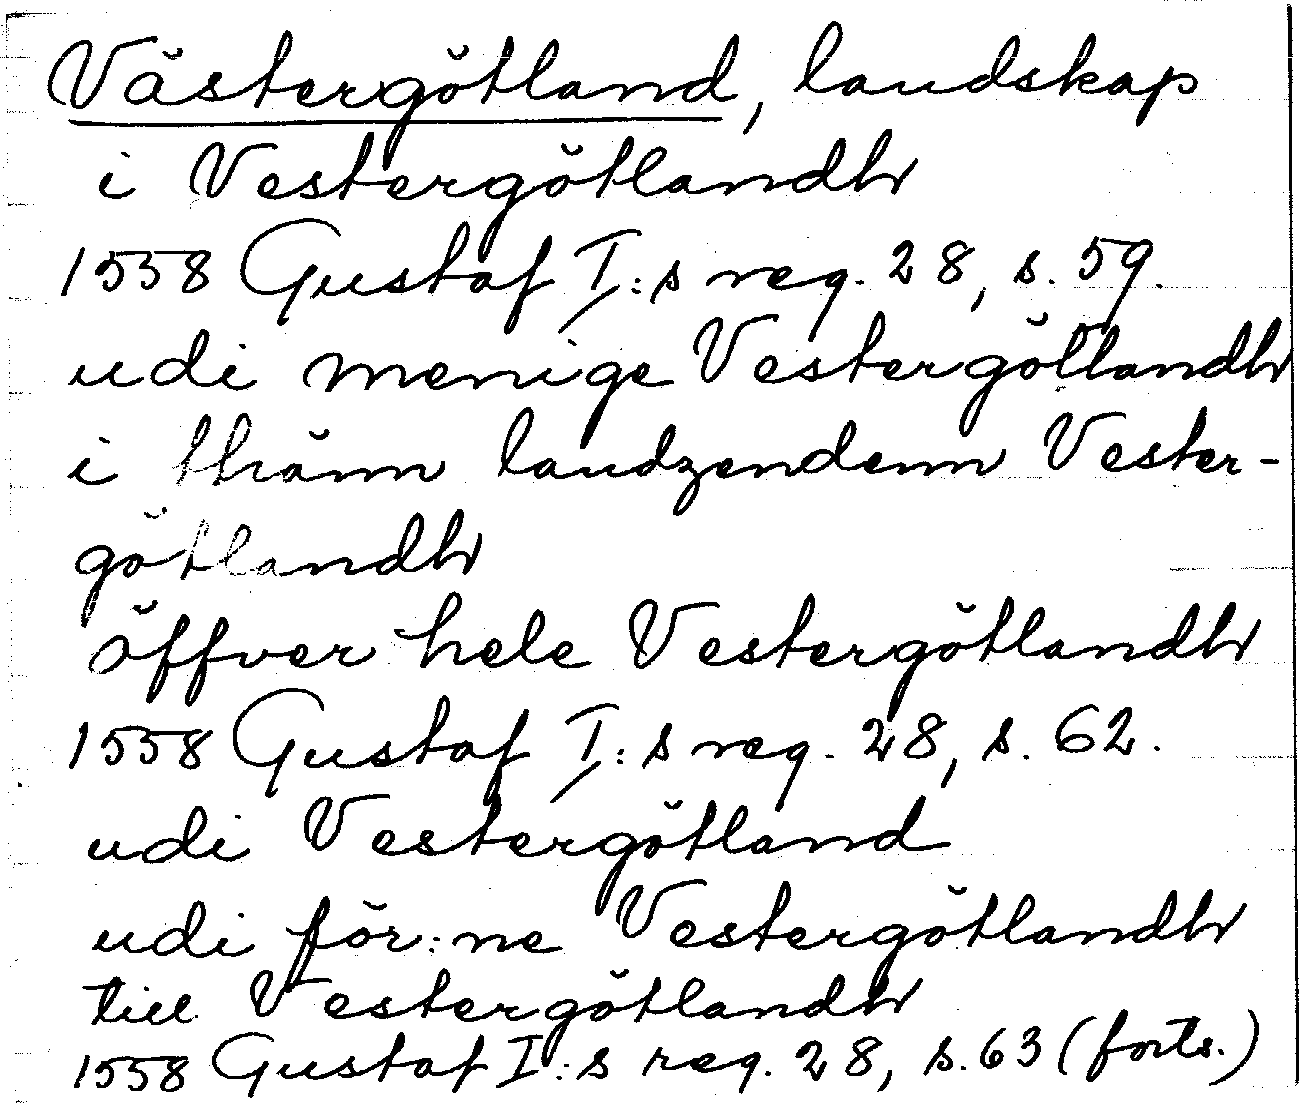 Västergötland, landskap
i Vestergötlandh
1558 Gustaf I:s reg. 28, s. 59.
udi menige Vestergötlandh
i thränn landzendenn Vester-
götlandh
öffver hele Vestergötlandh
1558 Gustaf I:s reg. 28, s. 62.
udi Vestergötland
udi för:ne Vestergötlandh
till Vestergötlandh
1558 Gustaf I:s reg. 28, s. 63 (forts.)